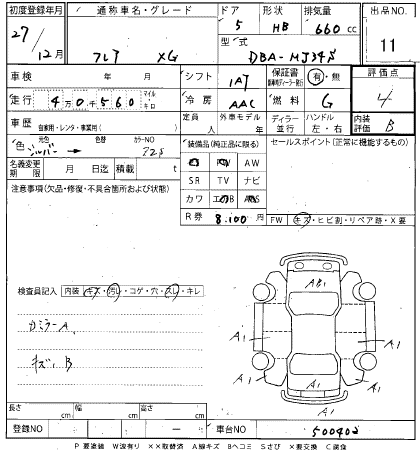 初度登録年月 通称車名・グレード ドア 形状 排気量 出品NO.
27/12月 フレア XG 5 HB 660 cc 11
型式 DBA-MJ34S
車検 年 月 シフト 1AT 保証書 有・無 評価点
走行 4万0千560 マイル キロ 冷房 AAC 燃料 G 4
車歴 自家用・レンタ・事業用( ) 定員 人 外車モデル 年 ディーラー 並行 ハンドル 左・右 内装評価 B
色 元色 シルバー → 色替 カラーNO 22S 装備品(純正品に限る) セールスポイント(正常に機能するもの)
名義変更期限 月 日迄 積載 t AW
注意事項(欠品・修復・不具合箇所および状態) SR TV ナビ
カワ エアB ABS
R券 8,100円 FW キズ・ヒビ割・リペア跡・X要
検査員記入 内装・キズ・汚レ・コゲ・穴・スレ・キレ
カミラーA
キズ、B
A1
A1
A1
A1
A1
A1
A1
長さ cm 幅 cm 高さ cm
登録NO ー 車台NO 500402
P 要塗装 W波有り ××取替済 A線キズ Bヘコミ Sさび ×要交換 C腐食